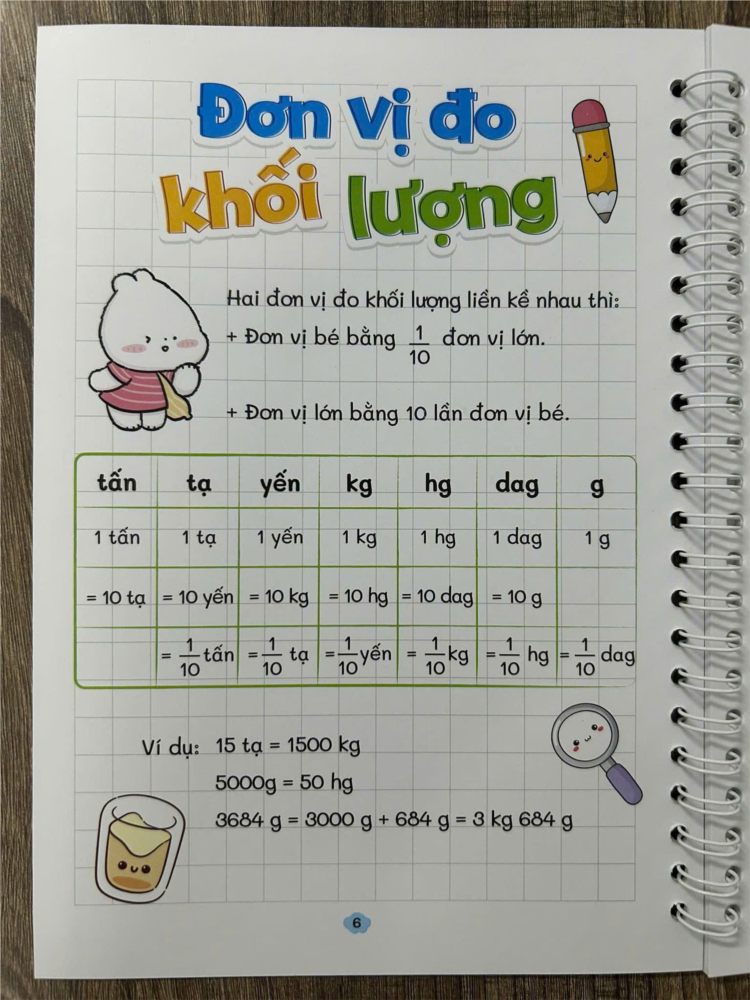 Đơn vị đo
khối lượng
Hai đơn vị đo khối lượng liền kề nhau thì:
+ Đơn vị bé bằng 1/10 đơn vị lớn.
+ Đơn vị lớn bằng 10 lần đơn vị bé.
tấn tạ yến kg hg dag g
1 tấn 1 tạ 1 yến 1 kg 1 hg 1 dag 1 g
= 10 tạ = 10 yến = 10 kg = 10 hg = 10 dag = 10 g
= 1/10 tấn = 1/10 tạ = 1/10 yến = 1/10 kg = 1/10 hg = 1/10 dag
Ví dụ: 15 tạ = 1500 kg
5000g = 50 hg
3684 g = 3000 g + 684 g = 3 kg 684 g
6